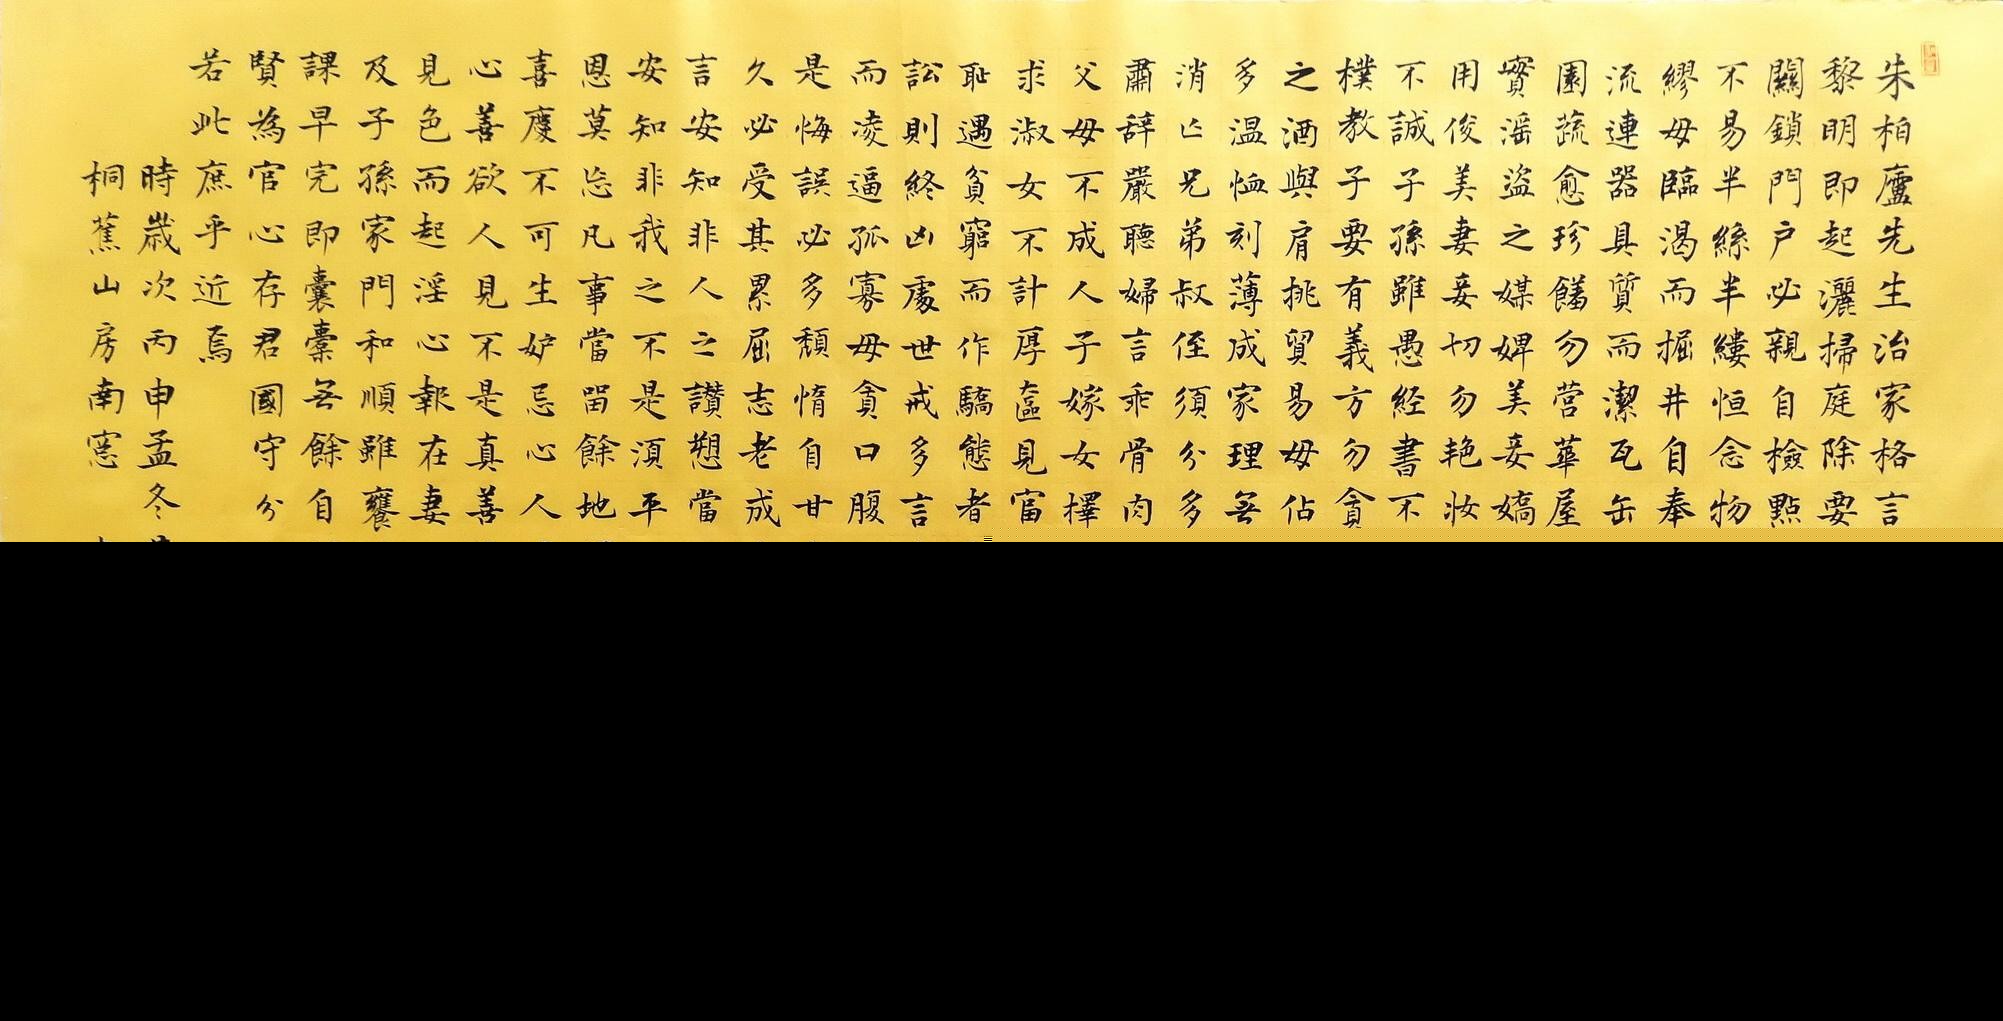 朱柏廬先生治家格言
黎明即起灑掃庭除要
關鎖門户必親自檢點
不易半絲半縷恒念物
繆毋臨渴而掘井自奉
流連器具質而潔瓦缶
園蔬愈珍饈勿營華屋
實滛盜之媒婢美妾嬌
用俊美妻妾切勿艳妝
不誠子孫雖愚经書不
樸教子要有義方勿貪
之酒與肩挑貿易毋佔
多温恤刻薄成家理無
消亡兄弟叔侄須分多
肅辞嚴聽婦言乖骨肉
父母不成人子嫁女擇
求淑女不計厚奩見富
耻遇貧窮而作驕態者
訟則終凶處世戒多言
而凌逼孤寡毋貪口腹
是悔誤必多頹惰自甘
久必受其累屈志老成
言安知非人之讃愬當
安知非我之不是須平
恩莫忘凡事當留餘地
喜慶不可生妒忌心人
心善欲人見不是真善
見色而起淫心報在妻
及子孫家門和順雖饔
課早完即囊橐无餘自
賢為官心存君國守分
若此庶乎近焉
時歲次丙申孟冬
桐蕉山房南窓